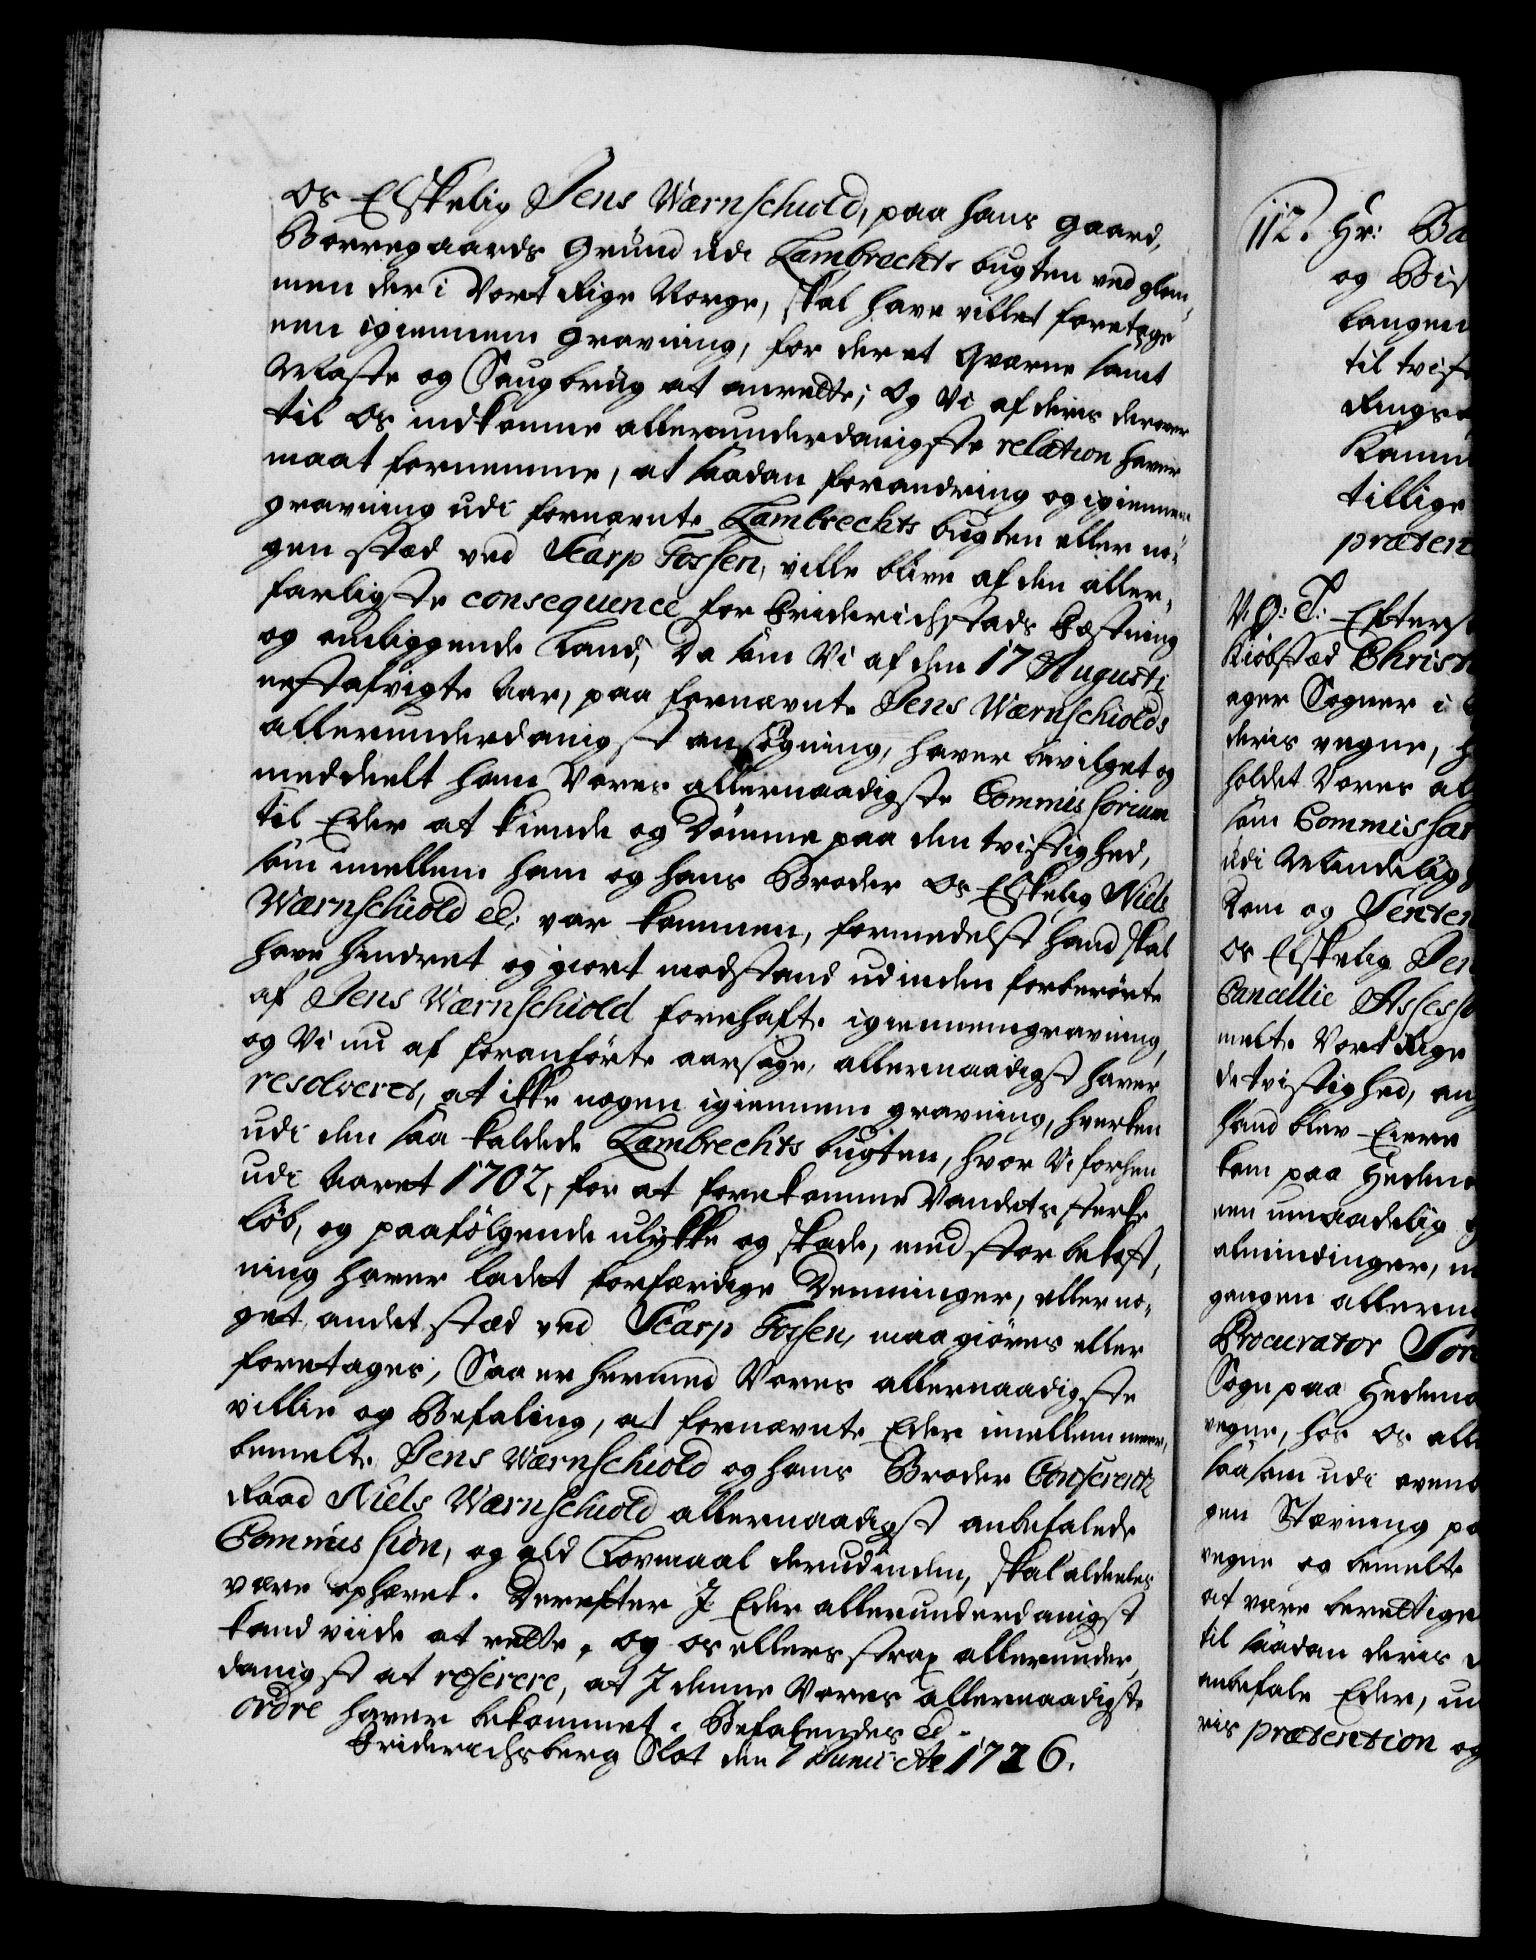 Os Elskelig Jens Wærnschiold, paa hans gaard,
Borregaards Grund udi Lambrechts bugten ved glem¬
men der i Vort Rige Norge, skal have villet foretage
een igiennem gravning, for der et Qværne samt
Maste og Saugbrug at anrette; Og Vi af deris derover
til Os indkomne allerunderdanigste relation haver
maat fornemme, at saadan forandring og igiennem
gravning udi fornævnte Lambrechts bugten eller no¬
gen stæd ved Sarp Fossen, ville blive af den aller¬
farligste consequence for Friderichstads Fæstning
og omliggende Land; Da som Vi af den 17 Augusti
nestafvigte Aar, paa fornævnte Jens Wærnschiolds
allerunderdanigst ansøgning, haver bevilget og
meddeelt ham Vores allernaadigste Commissorium
til Eder at kiende og Dømme paa den tvistighed,
som imellem ham og hans Broder Os Elskelig Niels
Wærnschiold ec. var kommen, formedelst hand skal
have hindret og giort modstand udinden forberørte
af Jens Wærnschiold forehafte igiennemgravning,
og Vi nu af foranførte aarsage, allernaadigst haver
resolveret, at ikke nogen igiennem gravning, hverken
udi den saa kaldede Lambrechts bugten, hvor Vi forhen
udi Aaret 1702, for at forekomme Vandets sterke
løb, og paafølgende ulykke og skade, med stor bekost¬
ning haver ladet forfærdige Demninger, eller no¬
get andet stæd ved Sarp Fossen, maa giøres eller
foretages; Saa er hermed Vores allernaadigste
villie og Befaling, at fornævnte Eder imellem meer¬
bemelte Jens Wærnschiold og hans Broder Conferentz
Raad Niels Wærnschiold allernaadigst anbefalede
Commission, og ald Lovmaal derudinden, skal aldeeles
være ophævet. Derefter I Eder allerunderdanigst
kand viide at rette, og os ellers strax allerunder¬
danigst at referere, at I denne Vores allernaadigste
ordre haver bekommet. Befalendes ec.
Friderichsberg Slot den 7 Junii Ao 1726.
112. Hr: Ba
og Bis
langen
til tvist
Rings
Kam
tillige
præten
V. G. T. Efters
Kiøbstæd Christ
ager Sogner i
deris vegne, h
holdet Vores al
som Commissar
udi Mindelig
kom og Senten
Os Elskelig Jen
Cancellie Assess
melte Vort Rige
de tvistighed, an
hand blev Eiere
kom paa Hedem
een umaadelig
almindinger, m
gangen allern
Procurator Sør
Sogn paa Hedem
vegne, hos Os all
saasom udi oven
gen Stævning pa
vegne og bemelte
at være berettige
til saadan deris
anbefale Eder, u
ris prætention og